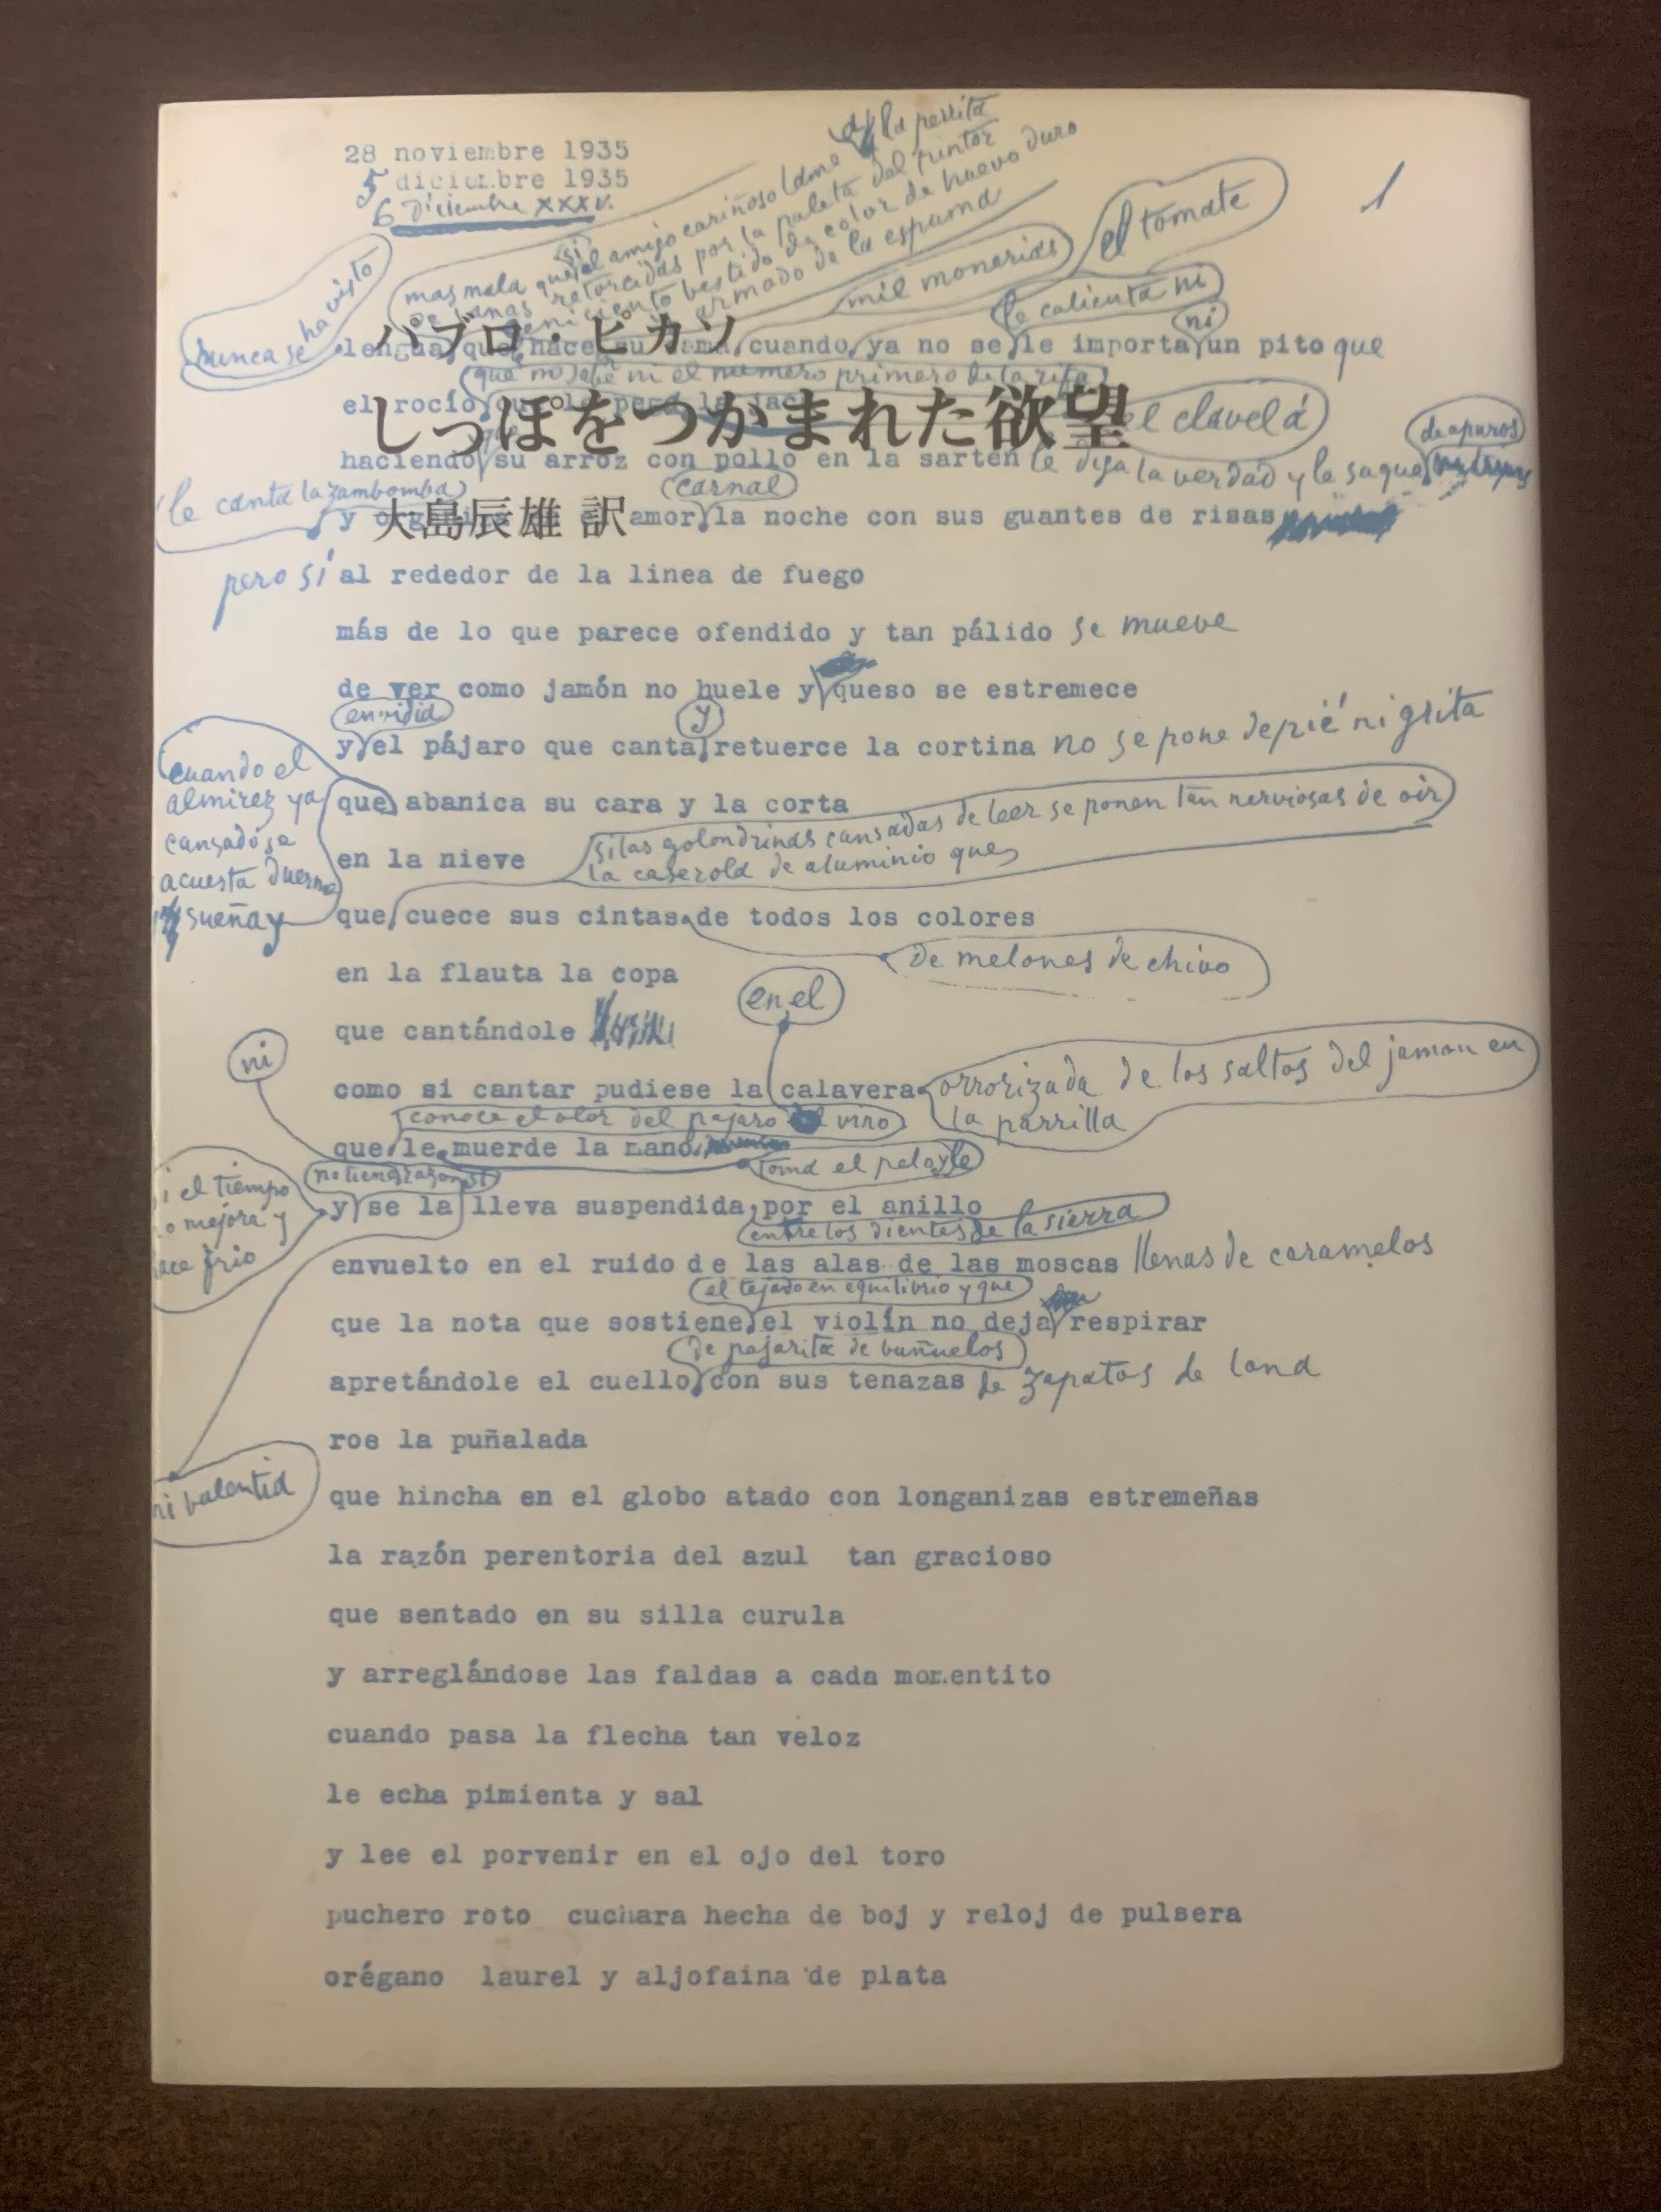 28 noviembre 1935
5 diciembre 1935
6 Diciembre XXXV.
1
a la perrita
mas mala que si el amigo cariñoso lame
de lanas retorcidas por la paleta del pintor
ceniciento vestido de color de huevo duro
armado de la espuma
mil monerias
el tomate
le calienta ni
ni
nunca se ha visto
パブロ・ピカソ
lengua que hace su cama cuando ya no se le importa un pito que
que no sabe ni el numero primero de la rifa
el rocío
しっぽをつかまれた欲望
el clavel á
de apuros
haciendo su arroz con pollo en la sarten le diga la verdad y le saque
le canta la zambomba
carnal
大島辰雄 訳
y amor la noche con sus guantes de risas
pero sí al rededor de la linea de fuego
más de lo que parece ofendido y tan pálido se mueve
de ver como jamón no huele y queso se estremece
envidia
y
y el pájaro que canta retuerce la cortina no se pone de pié ni grita
cuando el
almirez ya
cansado se
acuesta duerme
sueña y
que abanica su cara y la corta
si las golondrinas cansadas de leer se ponen tan nerviosas de oir
la caserola de aluminio que
en la nieve
que cuece sus cintas de todos los colores
de melones de chivo
en la flauta la copa
en el
que cantándole
ni
como si cantar pudiese la calavera
orrorizada de los saltos del jamon en
la parrilla
conoce el olor del pajaro vino
que le muerde la mano
toma el pelo y le
no tiene razon si
i el tiempo
o mejora y
ace frio
y se la lleva suspendida por el anillo
entre los dientes de la sierra
envuelto en el ruido de las alas de las moscas llenas de caramelos
el tejado en equilibrio y que
que la nota que sostiene el violín no deja respirar
de pajarita de buñuelos
apretándole el cuello con sus tenazas de zapatos de lana
roe la puñalada
ni valentia
que hincha en el globo atado con longanizas estremeñas
la razón perentoria del azul tan gracioso
que sentado en su silla curula
y arreglándose las faldas a cada momentito
cuando pasa la flecha tan veloz
le echa pimienta y sal
y lee el porvenir en el ojo del toro
puchero roto cuchara hecha de boj y reloj de pulsera
orégano laurel y aljofaina de plata